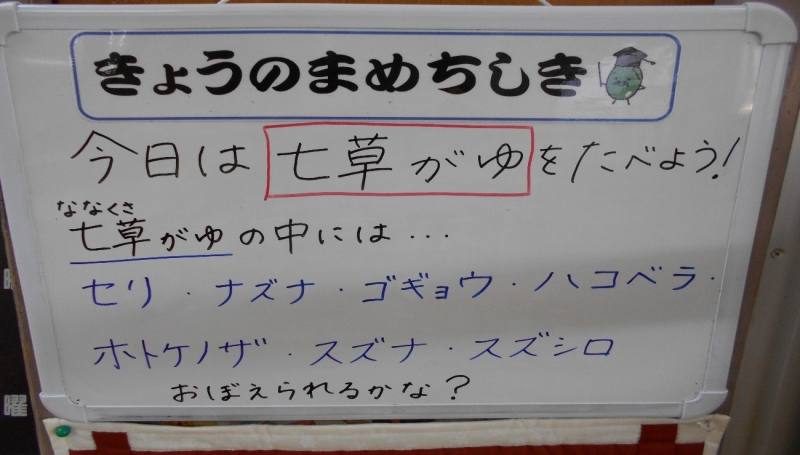 きょうのまめちしき
今日は七草がゆをたべよう!
ななくさ
七草がゆの中には...
セリ・ナズナ・ゴギョウ・ハコベラ・
ホトケノザ・スズナ・スズシロ
おぼえられるかな?
曜